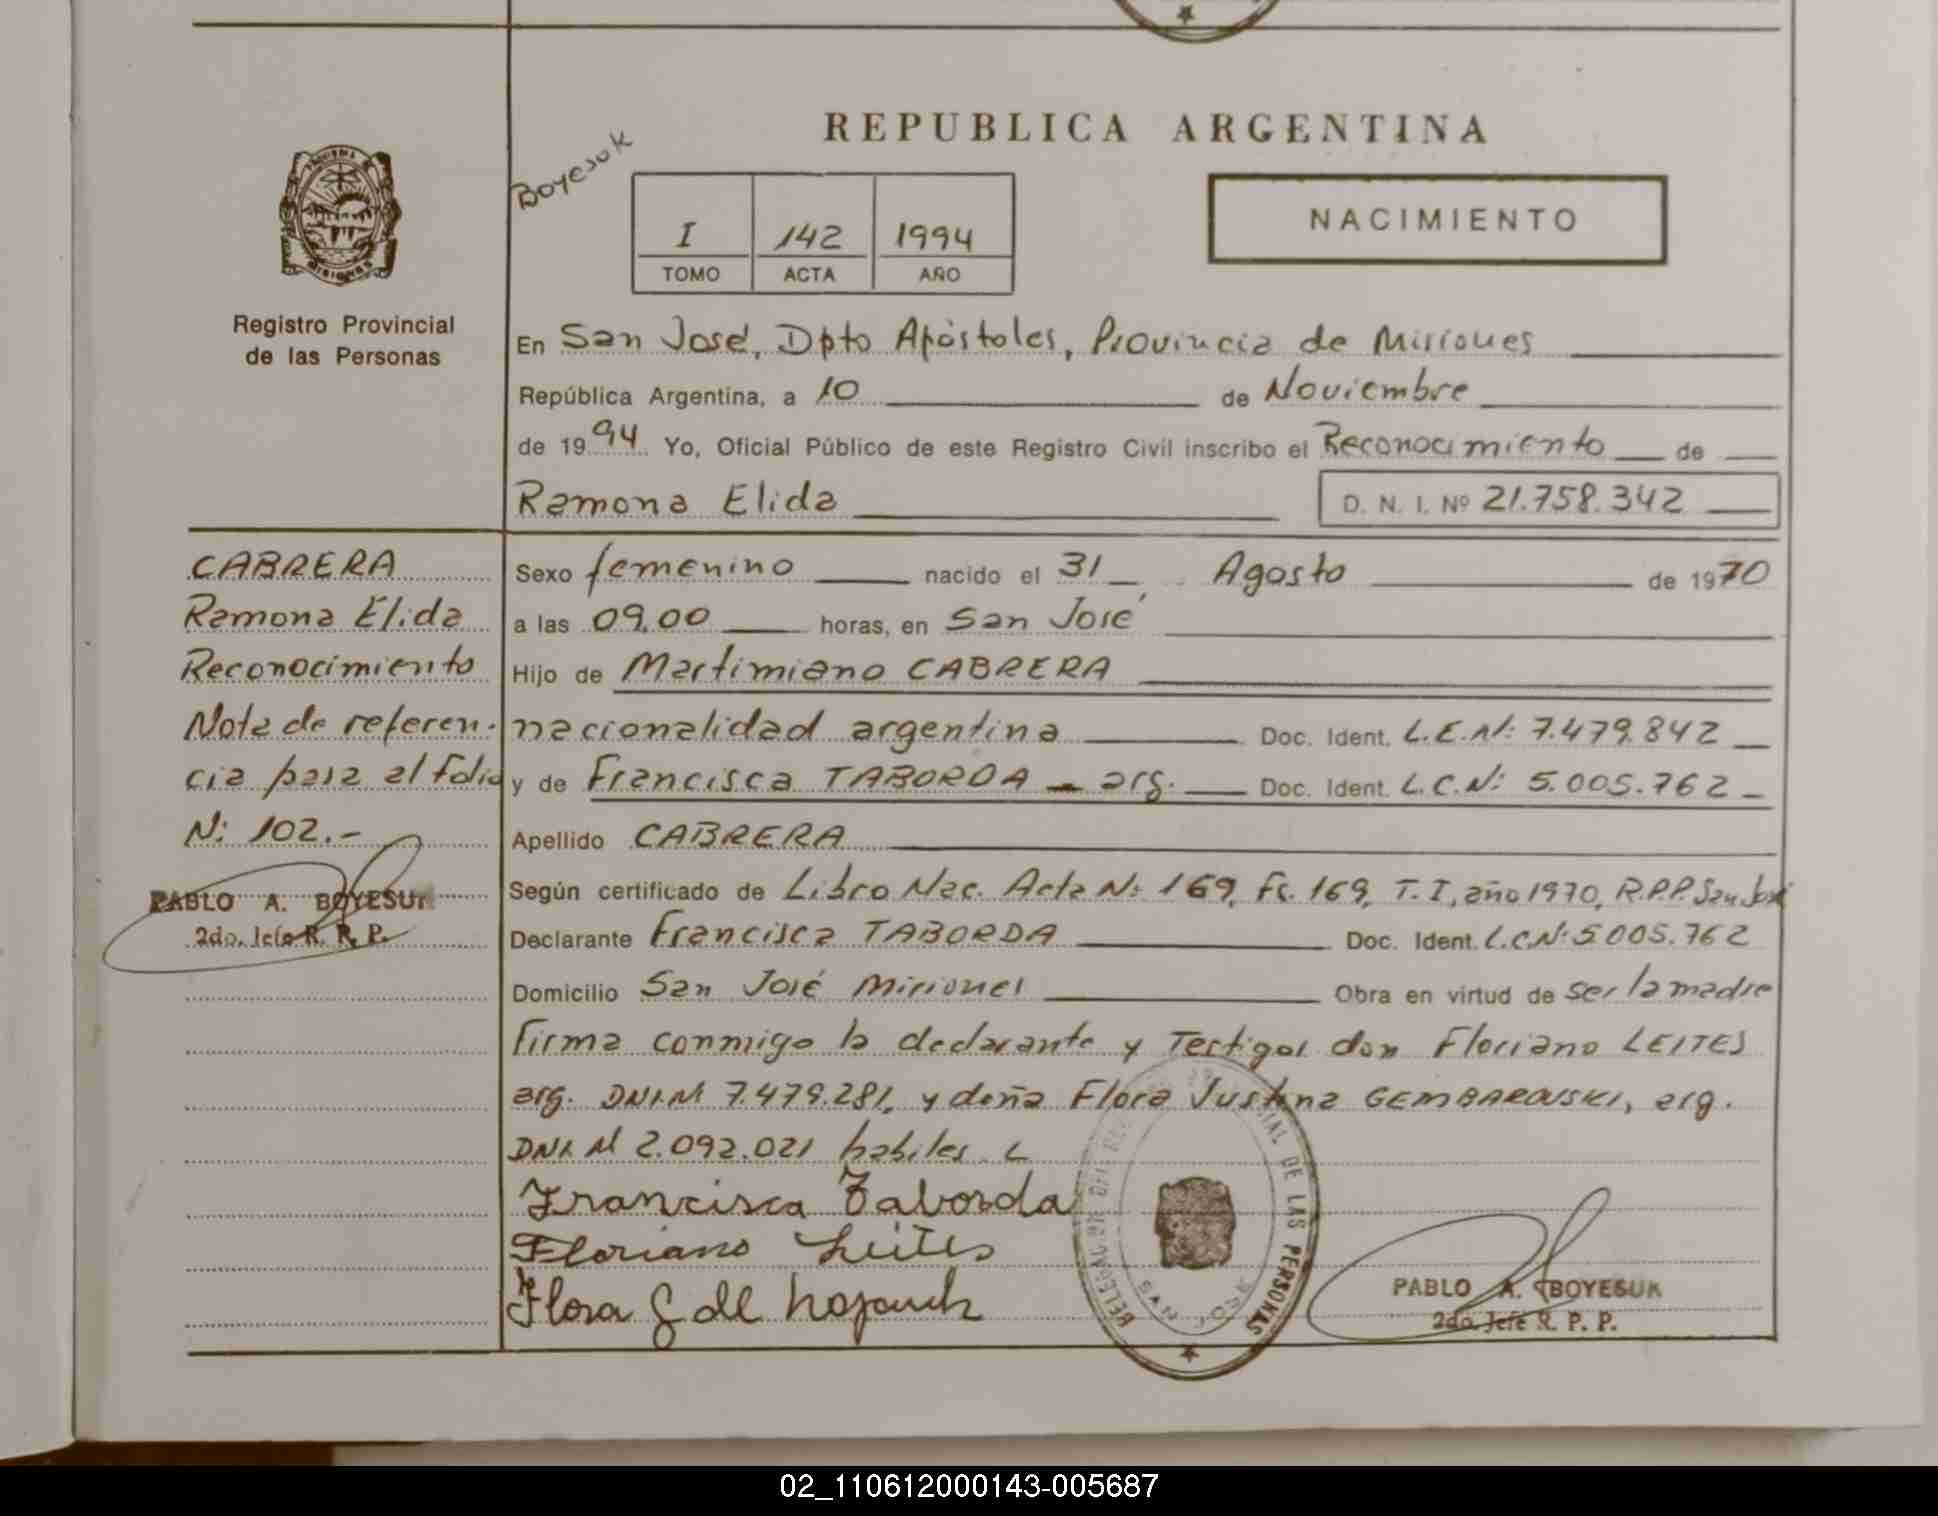 REPUBLICA ARGENTINA
Boyesok
I 142 1994
TOMO ACTA AÑO
NACIMIENTO
Registro Provincial
de las Personas
En San José, Dpto Apóstoles, Provincia de Misiones
República Argentina, a 10 de Noviembre
de 1994 Yo, Oficial Público de este Registro Civil inscribo el Reconocimiento de
Ramona Elida D. N. I. Nº 21.758.342
CABRERA
Ramona Elida
Reconocimiento
Nota de referen-
cia para al folio
N: 102.-
PABLO A. BOYESUK
2do. Jefe R. P. P.
Sexo femenino nacido el 31 Agosto de 1970
a las 09.00 horas, en San José
Hijo de Martimiano CABRERA
nacionalidad argentina Doc. Ident. L.E.N: 7.479.842
y de Francisca TABORDA - arg. Doc. Ident. L.C.N: 5.005.762
Apellido CABRERA
Según certificado de Libro Nac. Acta N: 169, Fs. 169, T. I, año 1970, R.P.P. San José
Declarante Francisca TABORDA Doc. Ident. L.C.N: 5.005.762
Domicilio San José Misiones Obra en virtud de ser la madre
Firma conmigo la declarante y Testigos don Floriano LEITES
arg. DNI.N 7.479.281, y doña Flora Justina GEMBAROWSKI, arg.
DNI. N 2.092.021 habiles
Francisca Taborda
Floriano Leites
Flora G de
DELEGACION DEL REGISTRO PROVINCIAL DE LAS PERSONAS
SAN JOSE
PABLO A. BOYESUK
2do. Jefe R. P. P.
02_110612000143-005687